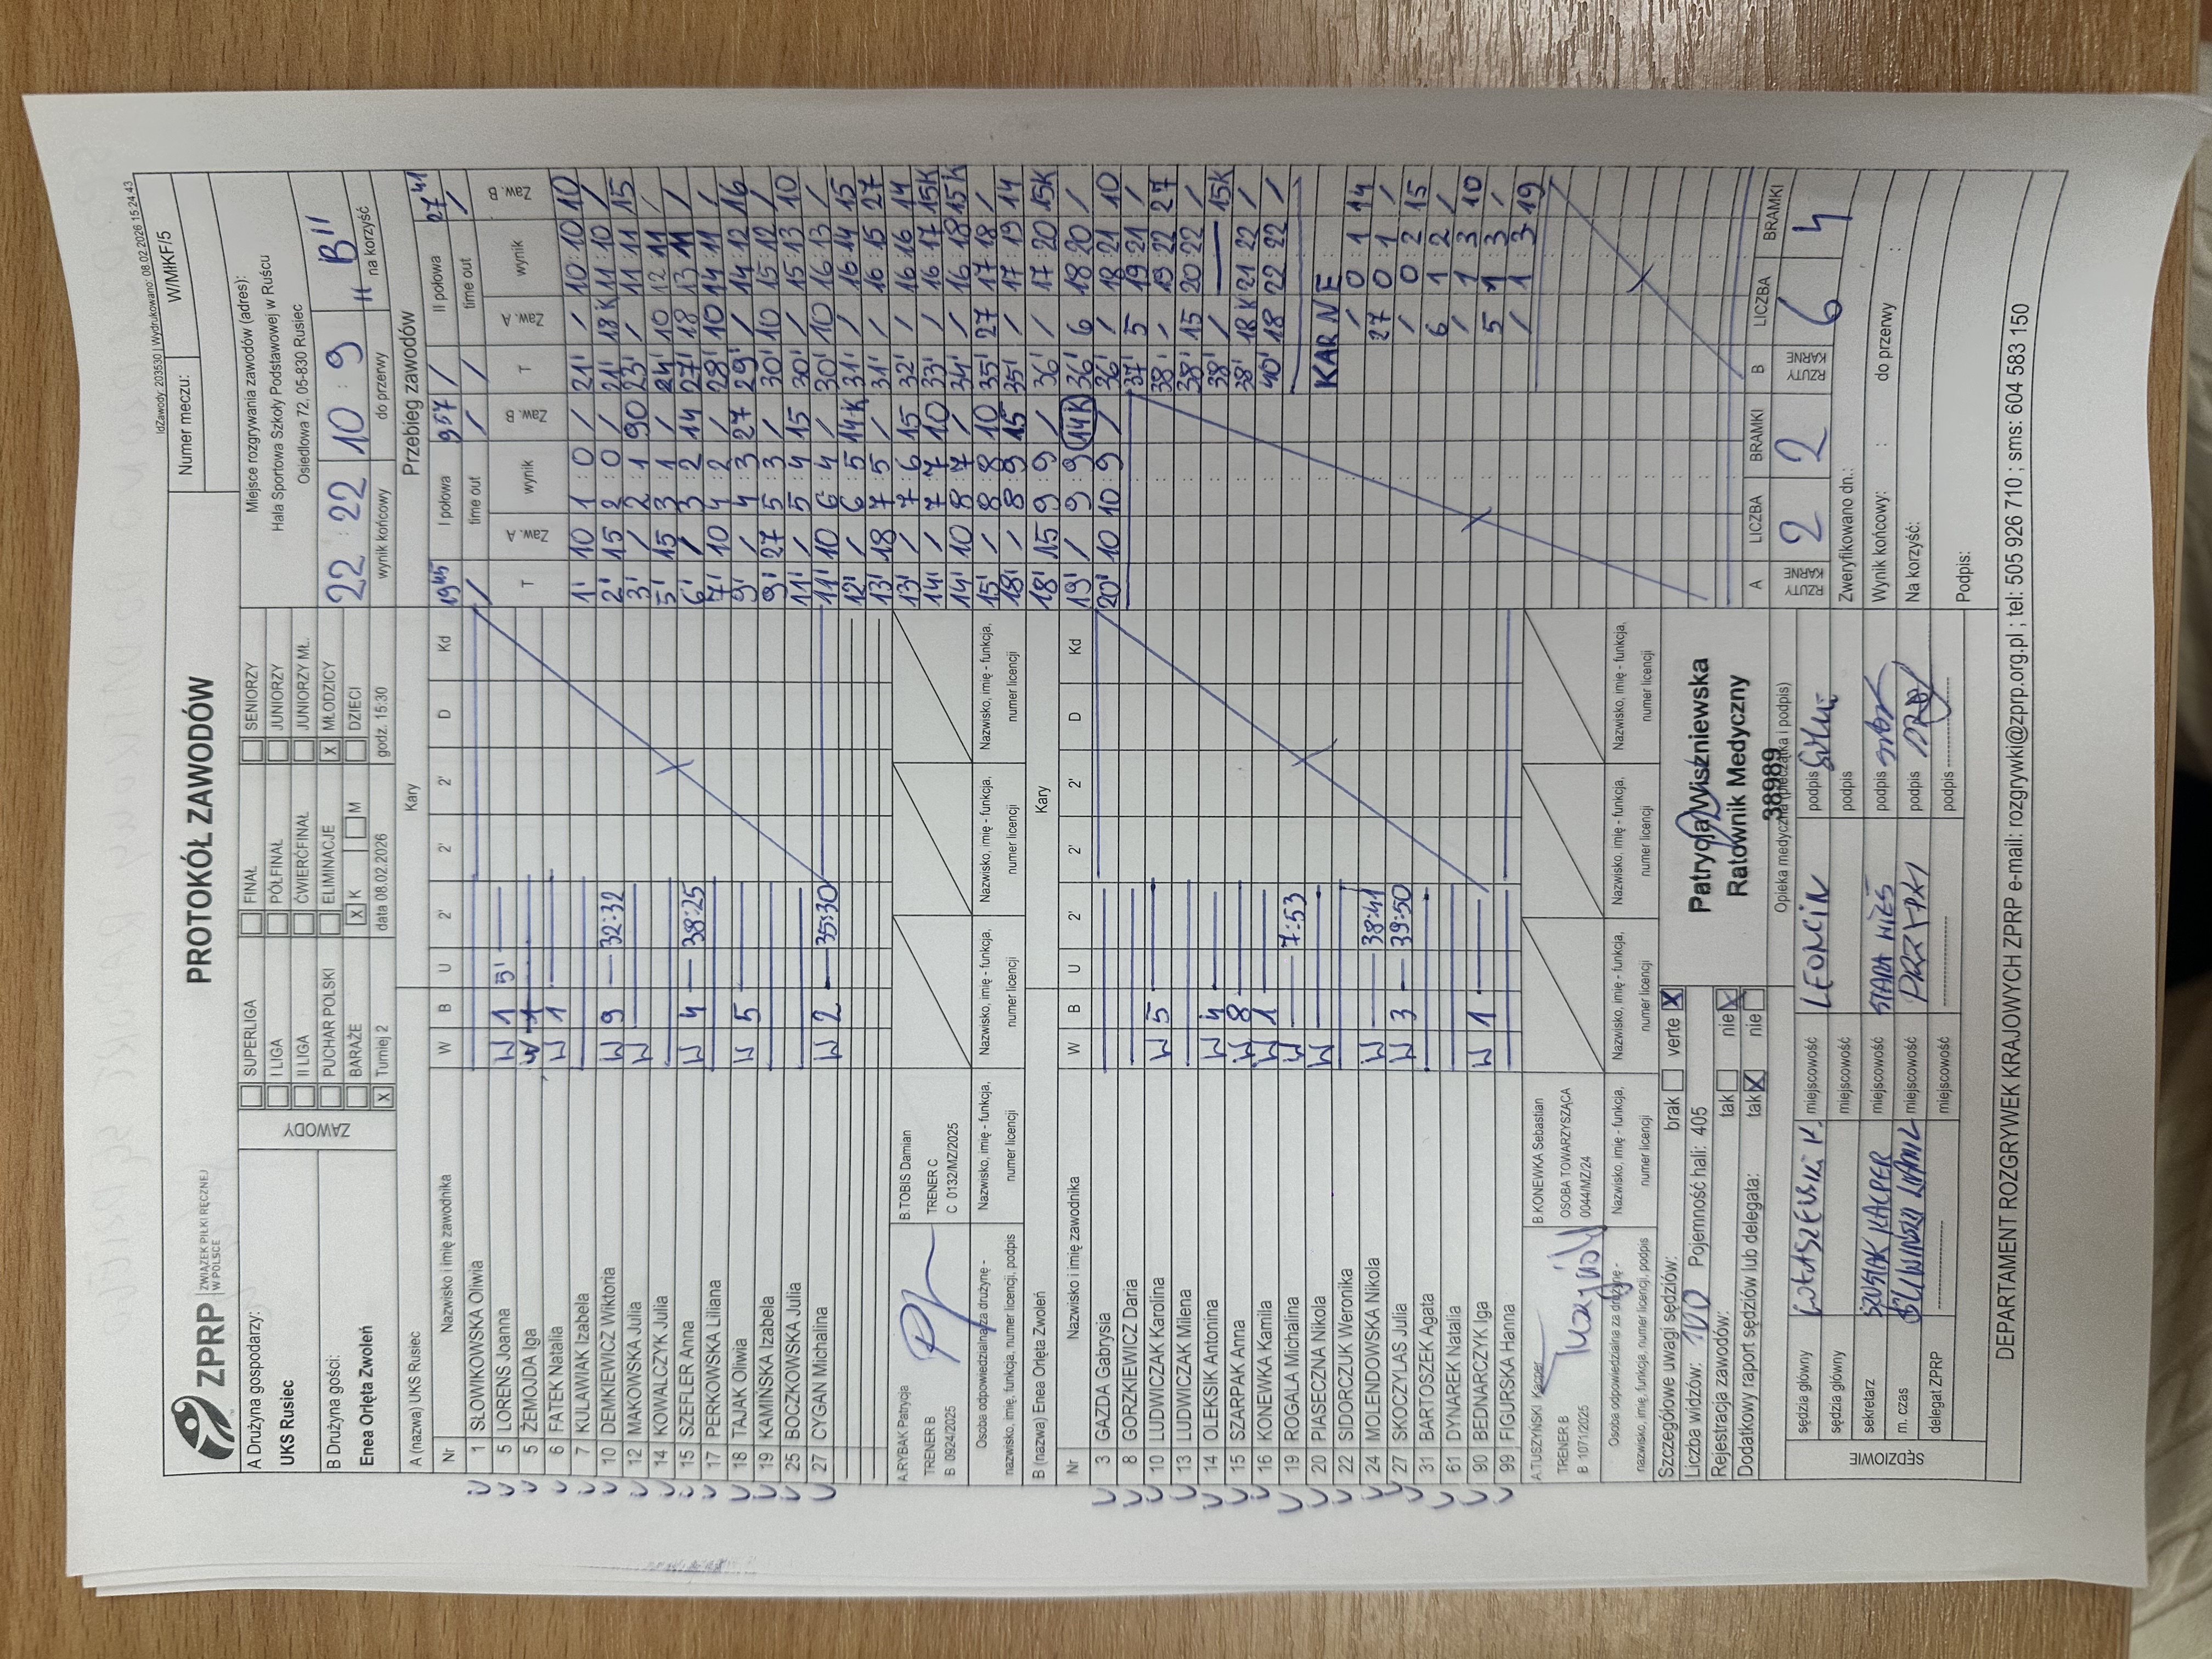 IdZawody: 203530 | Wydrukowano: 08.02.2026 15:24:43
ZPRP ZWIĄZEK PIŁKI RĘCZNEJ W POLSCE
PROTOKÓŁ ZAWODÓW
Numer meczu: W/MIKF/5
A Drużyna gospodarzy:
UKS Rusiec
B Drużyna gości:
Enea Orlęta Zwoleń
ZAWODY
SUPERLIGA
I LIGA
II LIGA
PUCHAR POLSKI
BARAŻE
X Turniej 2
FINAŁ
PÓŁFINAŁ
ĆWIERĆFINAŁ
ELIMINACJE
X K M
data 08.02.2026
SENIORZY
JUNIORZY
JUNIORZY MŁ.
X MŁODZICY
DZIECI
godz. 15:30
Miejsce rozgrywania zawodów (adres):
Hala Sportowa Szkoły Podstawowej w Ruścu
Osiedlowa 72, 05-830 Rusiec
22 : 22 10 : 9 "B"
wynik końcowy do przerwy na korzyść
A (nazwa) UKS Rusiec Kary
Nr Nazwisko i imię zawodnika W B U 2' 2' 2' D Kd
1 SŁOWIKOWSKA Oliwia
5 LORENS Joanna W 1 5'
5 ŻEMOJDA Iga
6 FATEK Natalia W 1
7 KULAWIAK Izabela
10 DEMKIEWICZ Wiktoria W 9 32:32
12 MAKOWSKA Julia W
14 KOWALCZYK Julia
15 SZEFLER Anna W 4 38:25
17 PERKOWSKA Liliana
18 TAJAK Oliwia W 5
19 KAMIŃSKA Izabela
25 BOCZKOWSKA Julia
27 CYGAN Michalina W 2 35:30
A.RYBAK Patrycja
TRENER B
B 0924/2025
B.TOBIS Damian
TRENER C
C 0132/MZ/2025
Osoba odpowiedzialna za drużynę - nazwisko, imię, funkcja, numer licencji, podpis
Nazwisko, imię - funkcja, numer licencji
Nazwisko, imię - funkcja, numer licencji
Nazwisko, imię - funkcja, numer licencji
Nazwisko, imię - funkcja, numer licencji
B (nazwa) Enea Orlęta Zwoleń Kary
Nr Nazwisko i imię zawodnika W B U 2' 2' 2' D Kd
3 GAZDA Gabrysia
8 GORZKIEWICZ Daria
10 LUDWICZAK Karolina W 5
13 LUDWICZAK Milena
14 OLEKSIK Antonina W 4
15 SZARPAK Anna W 8
16 KONEWKA Kamila W 1
19 ROGALA Michalina W 7:53
20 PIASECZNA Nikola W
22 SIDORCZUK Weronika
24 MOLENDOWSKA Nikola W 38:41
27 SKOCZYLAS Julia W 3 39:50
31 BARTOSZEK Agata
61 DYNAREK Natalia
90 BEDNARCZYK Iga W 1
99 FIGURSKA Hanna
A.TUSZYŃSKI Kacper
TRENER B
B 1071/2025
B.KONEWKA Sebastian
OSOBA TOWARZYSZĄCA
0044/MZ/24
Osoba odpowiedzialna za drużynę - nazwisko, imię, funkcja, numer licencji, podpis
Nazwisko, imię - funkcja, numer licencji
Nazwisko, imię - funkcja, numer licencji
Nazwisko, imię - funkcja, numer licencji
Nazwisko, imię - funkcja, numer licencji
Przebieg zawodów
19 45 I połowa 9 57 / II połowa 27 41
/ time out / / time out /
T Zaw. A wynik Zaw. B T Zaw. A wynik Zaw. B
1' 10 1 : 0 / 21' / 10 : 10 10
2' 15 2 : 0 / 21' 18K 11 : 10 /
3' / 2 : 1 90 23' / 11 : 11 15
5' 15 3 : 1 / 24' 10 12 : 11 /
6' / 3 : 2 14 27' 18 13 : 11 /
7' 10 4 : 2 / 28' 10 14 : 11 /
9' / 4 : 3 27 29' / 14 : 12 16
9' 27 5 : 3 / 30' 10 15 : 12 /
11' / 5 : 4 15 30' / 15 : 13 10
11' 10 6 : 4 / 30' 10 16 : 13 /
12' / 6 : 5 14K 31' / 16 : 14 15
13' 18 7 : 5 / 31' / 16 : 15 27
13' / 7 : 6 15 32' / 16 : 16 14
14' / 7 : 7 10 33' / 16 : 17 15K
14' 10 8 : 7 / 34' / 16 : 18 15K
15' / 8 : 8 10 35' 27 17 : 18 /
18' / 8 : 9 15 35' / 17 : 19 14
18' 15 9 : 9 / 36' / 17 : 20 15K
19' / 9 : 9 14K 36' 6 18 : 20 /
20' 10 10 : 9 / 36' / 18 : 21 10
37' 5 19 : 21 /
38' / 19 : 22 27
38' 15 20 : 22 /
38' / — 15K
38' 18K 21 : 22 /
40' 18 22 : 22 /
KARNE
/ 0 : 1 14
27 0 : 1 /
/ 0 : 2 15
6 1 : 2 /
/ 1 : 3 10
5 1 : 3 /
/ 1 : 3 19
A RZUTY KARNE LICZBA 2 BRAMKI 2
B RZUTY KARNE LICZBA 6 BRAMKI 4
Szczegółowe uwagi sędziów: brak verte X
Liczba widzów: 100 Pojemność hali: 405
Rejestracja zawodów: tak nie X
Dodatkowy raport sędziów lub delegata: tak X nie
Patrycja Wiszniewska
Ratownik Medyczny
38989
Opieka medyczna (pieczątka i podpis)
SĘDZIOWIE
sędzia główny miejscowość LEONCIN podpis
sędzia główny miejscowość podpis
sekretarz SZUSTAK KACPER miejscowość STARA WIEŚ podpis
m. czas miejscowość podpis
delegat ZPRP miejscowość podpis
Zweryfikowano dn.:
Wynik końcowy: : do przerwy :
Na korzyść:
Podpis:
DEPARTAMENT ROZGRYWEK KRAJOWYCH ZPRP e-mail: rozgrywki@zprp.org.pl ; tel: 505 926 710 ; sms: 604 583 150